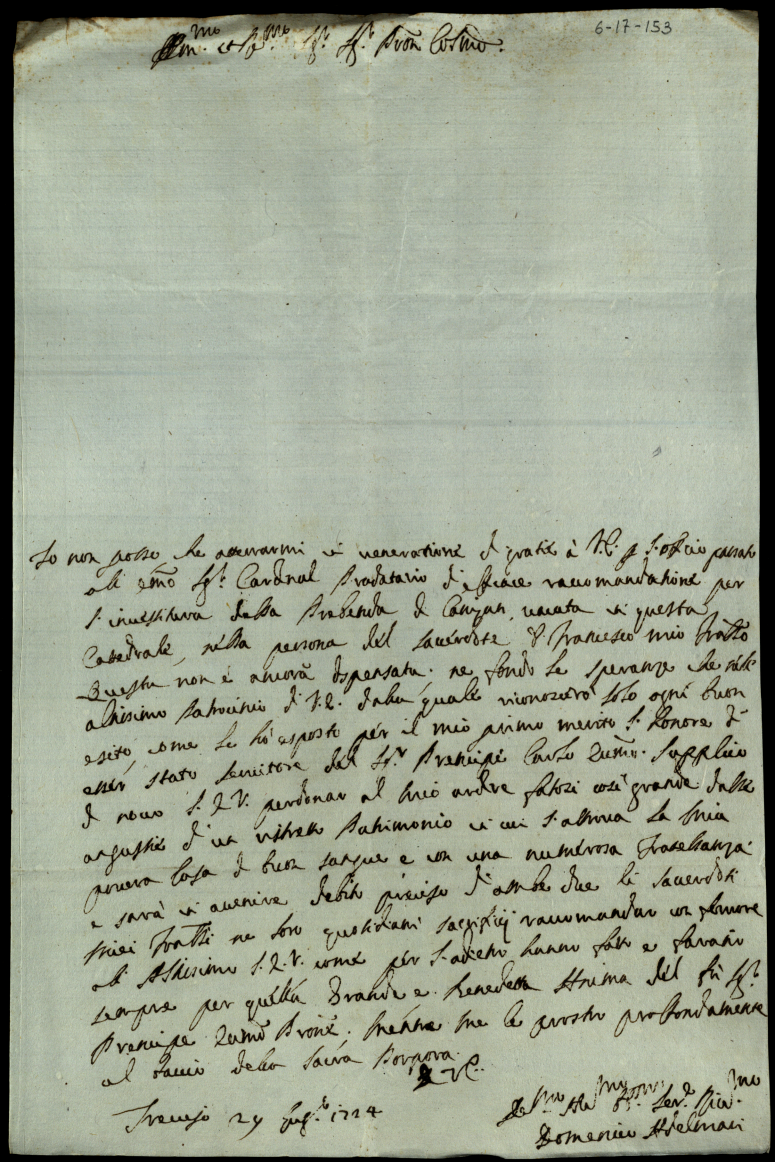 6-17-153
Em.mo et R.mo Sig.r Sig.r Pron Col.mo
Io non posso che atterrarmi in veneratione di gratie à V.E. p l'officio passato
all' emo Sig.r Cardinal Prodatario d'efficace raccomandatione per
l'investitura della Prebenda di Canzan, vacata in questa
Cattedrale, nella persona del sacerdote D. Francesco mio Fratello
Questa non è ancora dispensata. ne fondo le speranze che nell'
altissimo Patrocinio di V.E. dalla quale riconoscerò solo ogni buon
esito, come le hò esposto per il mio primo merito l'honore d'
esser stato servitore del Sig.r Prencipe Carlo Zumo. Supplico
di novo l'E.V. perdonar al mio ardire fattosi così grande dalle
angustie d'un ristretto Patrimonio in cui s'attrova la mia
povera Casa di buon sangue e con una numerosa Fratellanza.
e sarà in avenire debito preciso d'ambe due li sacerdoti
miei Fratelli ne loro quotidiani sacrificij raccomandar con fervore
all' Altissimo l'E.V. come per l'adietro hanno fatto e faranno
sempre per quella Grande e Benedetta Anima del fù Sig.r
Prencipe Zumo Prone. Mentre me le prostro profondamente
al baccio della Sacra Porpora.
D V.E.
Treviso 29 1724
Ser.
Domenico Adelmari